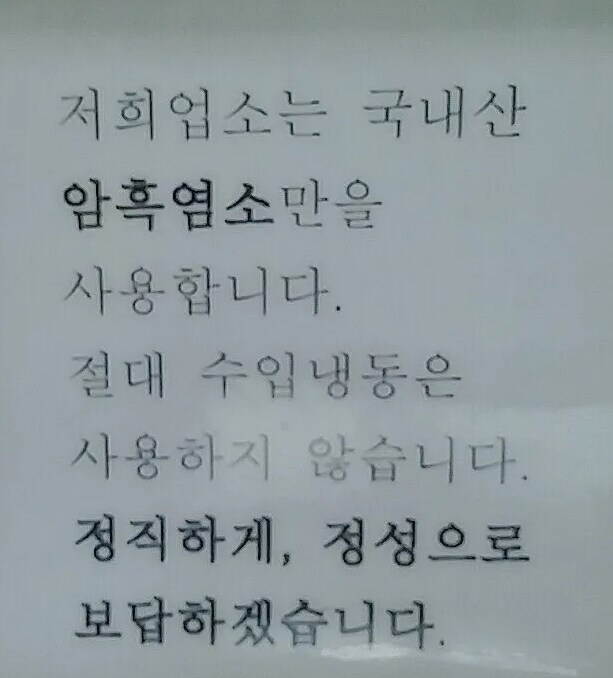 저희업소는 국내산
암흑염소만을
사용합니다.
절대 수입냉동은
사용하지 않습니다.
정직하게, 정성으로
보답하겠습니다.